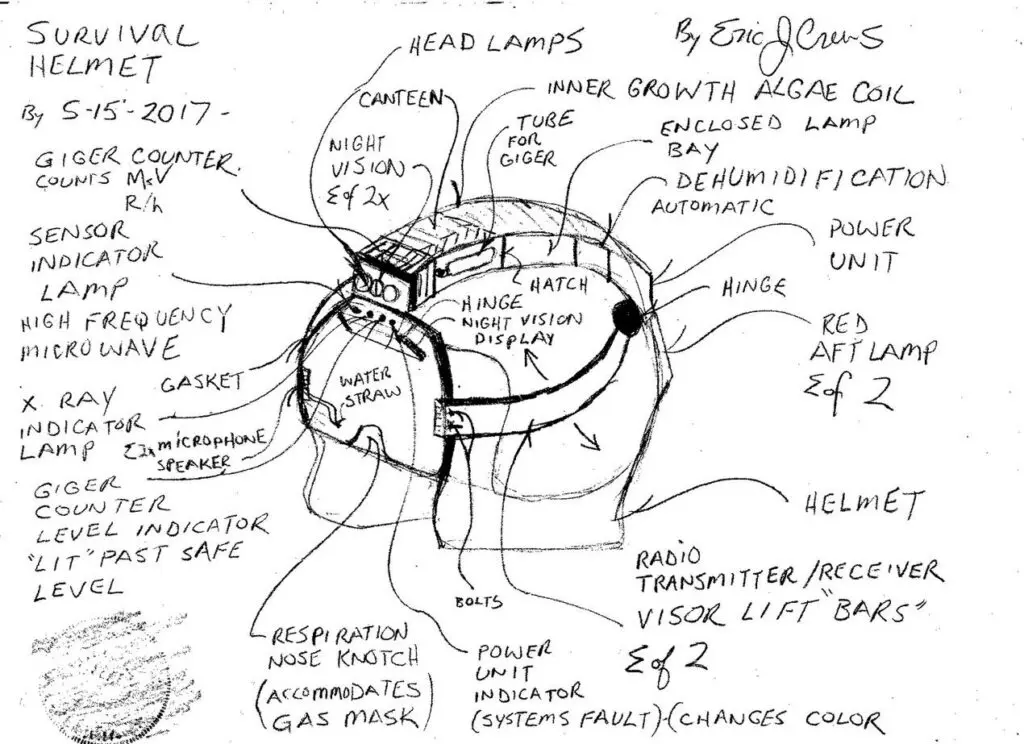 SURVIVAL
HELMET
By 5-15-2017-
By Eric J Crews
HEAD LAMPS
CANTEEN
INNER GROWTH ALGAE COIL
TUBE
FOR
GIGER
ENCLOSED LAMP
BAY
NIGHT
VISION
Σ of 2x
GIGER COUNTER
COUNTS MSV
R/h
DEHUMIDIFICATION
AUTOMATIC
SENSOR
INDICATOR
LAMP
POWER
UNIT
HATCH
HINGE
HINGE
NIGHT VISION
DISPLAY
HIGH FREQUENCY
MICROWAVE
RED
AFT LAMP
Σ of 2
GASKET
WATER
STRAW
X. RAY
INDICATOR
LAMP
Σ2x MICROPHONE
SPEAKER
GIGER
COUNTER
LEVEL INDICATOR
"LIT" PAST SAFE
LEVEL
HELMET
RADIO
TRANSMITTER/RECEIVER
VISOR LIFT "BARS"
Σ of 2
BOLTS
RESPIRATION
NOSE KNOTCH
(ACCOMMODATES
GAS MASK)
POWER
UNIT
INDICATOR
(SYSTEMS FAULT)-(CHANGES COLOR